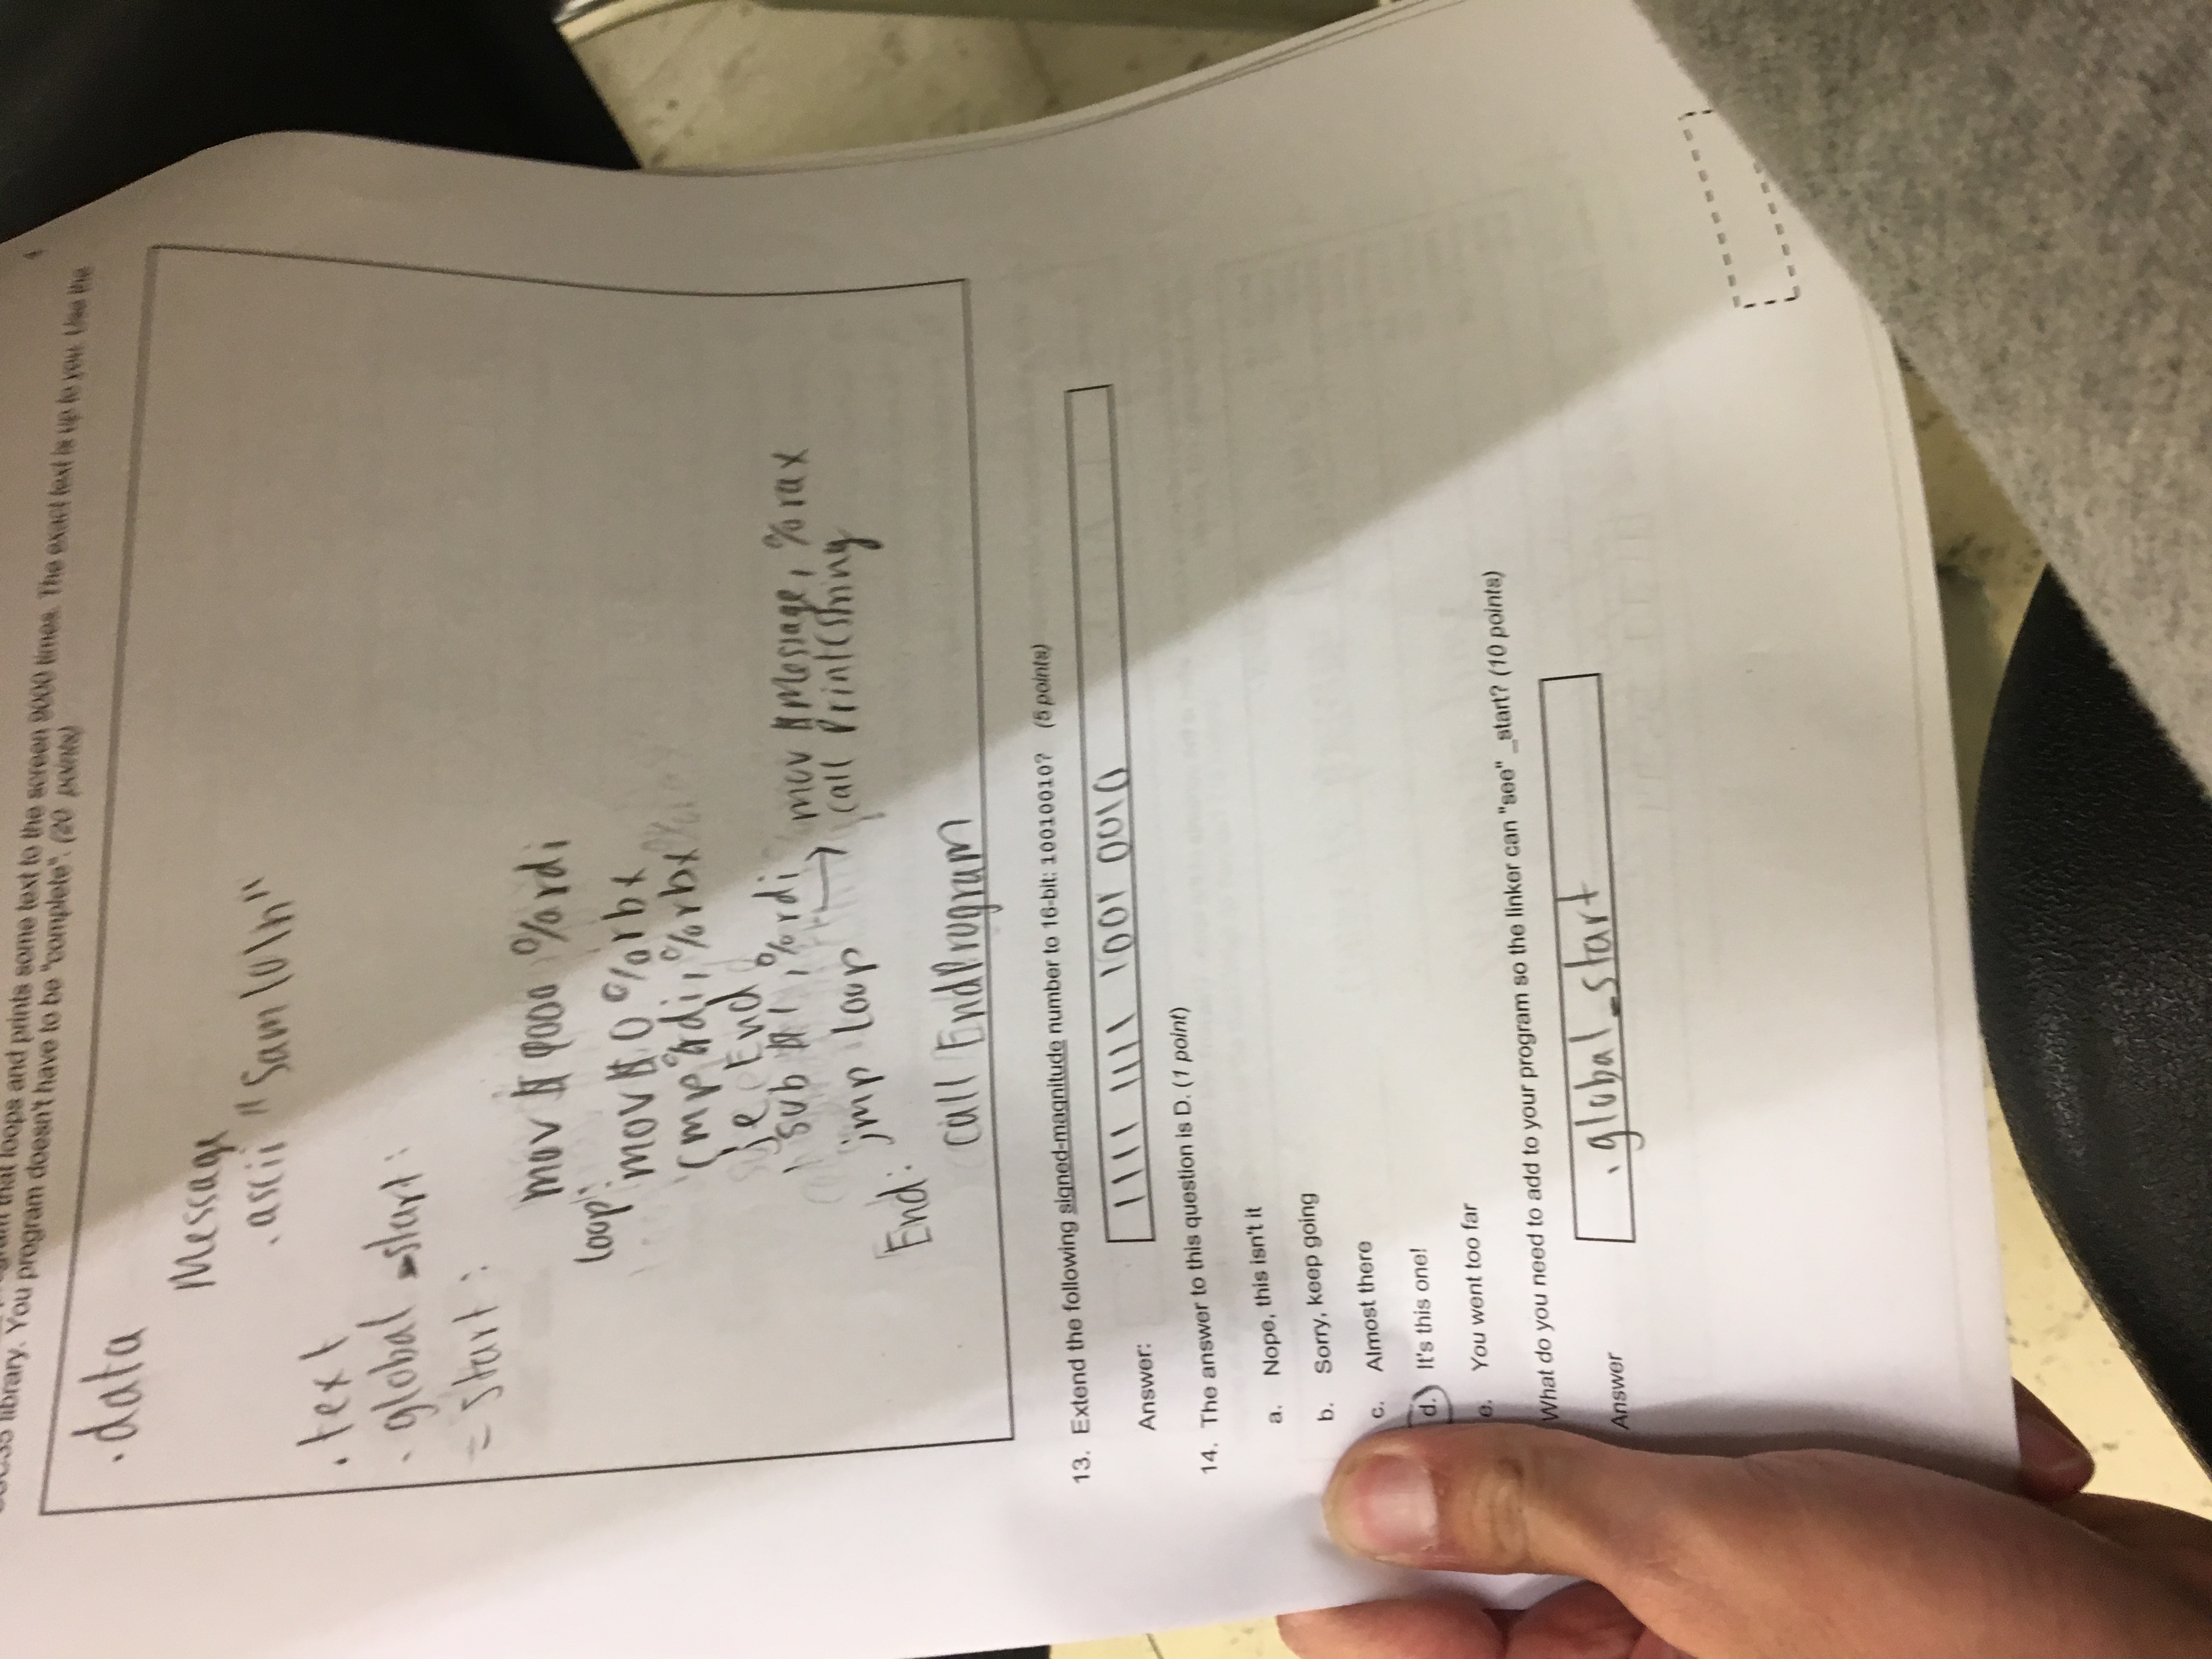 4
that loops and prints some text to the screen 9000 times. The exact text is up to you. Use the
library. You program doesn't have to be "complete". (20 points)
.data
Message
.ascii "Sam\0\n"
.text
.global _start:
_start:
mov $9000 %rdi
loop:
mov $0 %rbx
cmp %rdi, %rbx
je End
sub $1, %rdi
mov $Message, %rax
call PrintCString
jmp loop
End:
call EndProgram
13. Extend the following signed-magnitude number to 16-bit: 10010010? (5 points)
Answer: 1111 1111 1001 0010
14. The answer to this question is D. (1 point)
a. Nope, this isn't it
b. Sorry, keep going
c. Almost there
d. It's this one!
e. You went too far
What do you need to add to your program so the linker can "see" _start? (10 points)
Answer .global_start